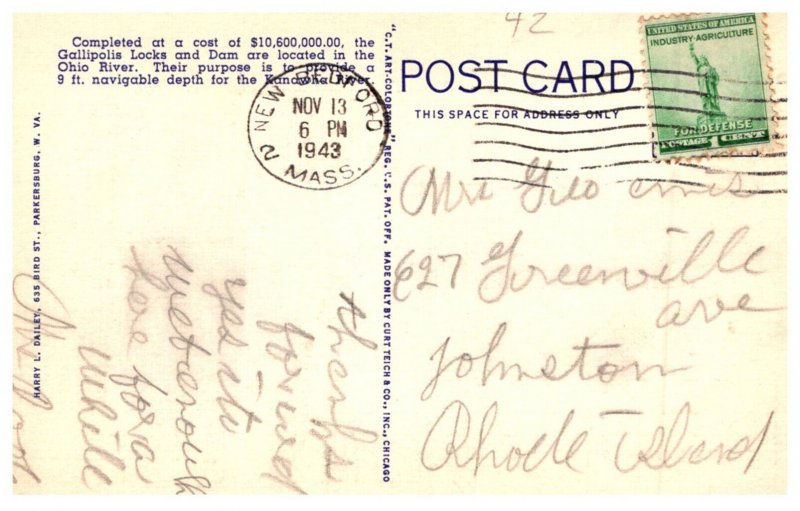 42
Completed at a cost of $10,600,000.00, the
Gallipolis Locks and Dam are located in the
Ohio River. Their purpose is to provide a
9 ft. navigable depth for the Kanawha River.
POST CARD
THIS SPACE FOR ADDRESS ONLY
UNITED STATES OF AMERICA
INDUSTRY-AGRICULTURE
FOR DEFENSE
POSTAGE 1 CENT
NEW BEDFORD
NOV 13
6 PM
1943
MASS.
2
"C.T. ART-COLORTONE" REG. U.S. PAT. OFF. MADE ONLY BY CURT TEICH & CO., INC., CHICAGO
HARRY L. DAILEY, 635 BIRD ST., PARKERSBURG, W. VA.
Mrs Geo
627 Greenville
ave
Johnston
Rhode Island
thanks
for
yes
here for a
while